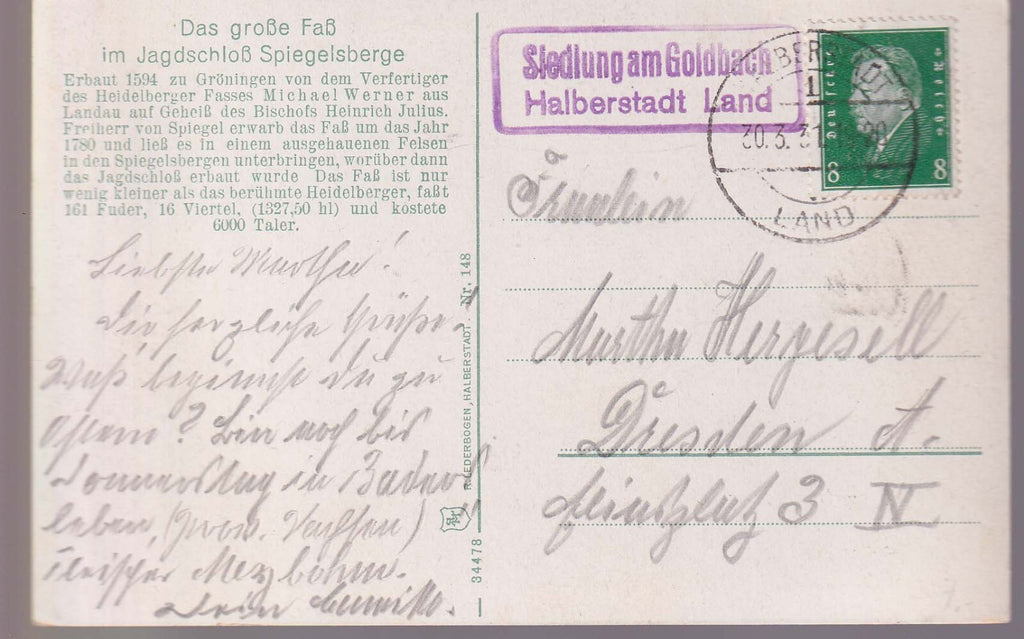 Das große Faß
im Jagdschloß Spiegelsberge
Erbaut 1594 zu Gröningen von dem Verfertiger
des Heidelberger Fasses Michael Werner aus
Landau auf Geheiß des Bischofs Heinrich Julius.
Freiherr von Spiegel erwarb das Faß um das Jahr
1780 und ließ es in einem ausgehauenen Felsen
in den Spiegelsbergen unterbringen, worüber dann
das Jagdschloß erbaut wurde Das Faß ist nur
wenig kleiner als das berühmte Heidelberger, faßt
161 Fuder, 16 Viertel, (1327,50 hl) und kostete
6000 Taler.
Liebste Martha!
Die herzliche Grüße.
Was beginnst Du zu
Ostern? Bin noch bis
Donnerstag in Baders
leben, (Prov. Sachsen)
Fleischer Meyböhm.
Dein
R. LEDERBOGEN, HALBERSTADT. Nr. 148
34478
Siedlung am Goldbach
Halberstadt Land
HALBERSTADT
1
30.3.31
LAND
Deutsches Reich
8 8
Fräulein
Martha Hergesell
Dresden A.
3 IV